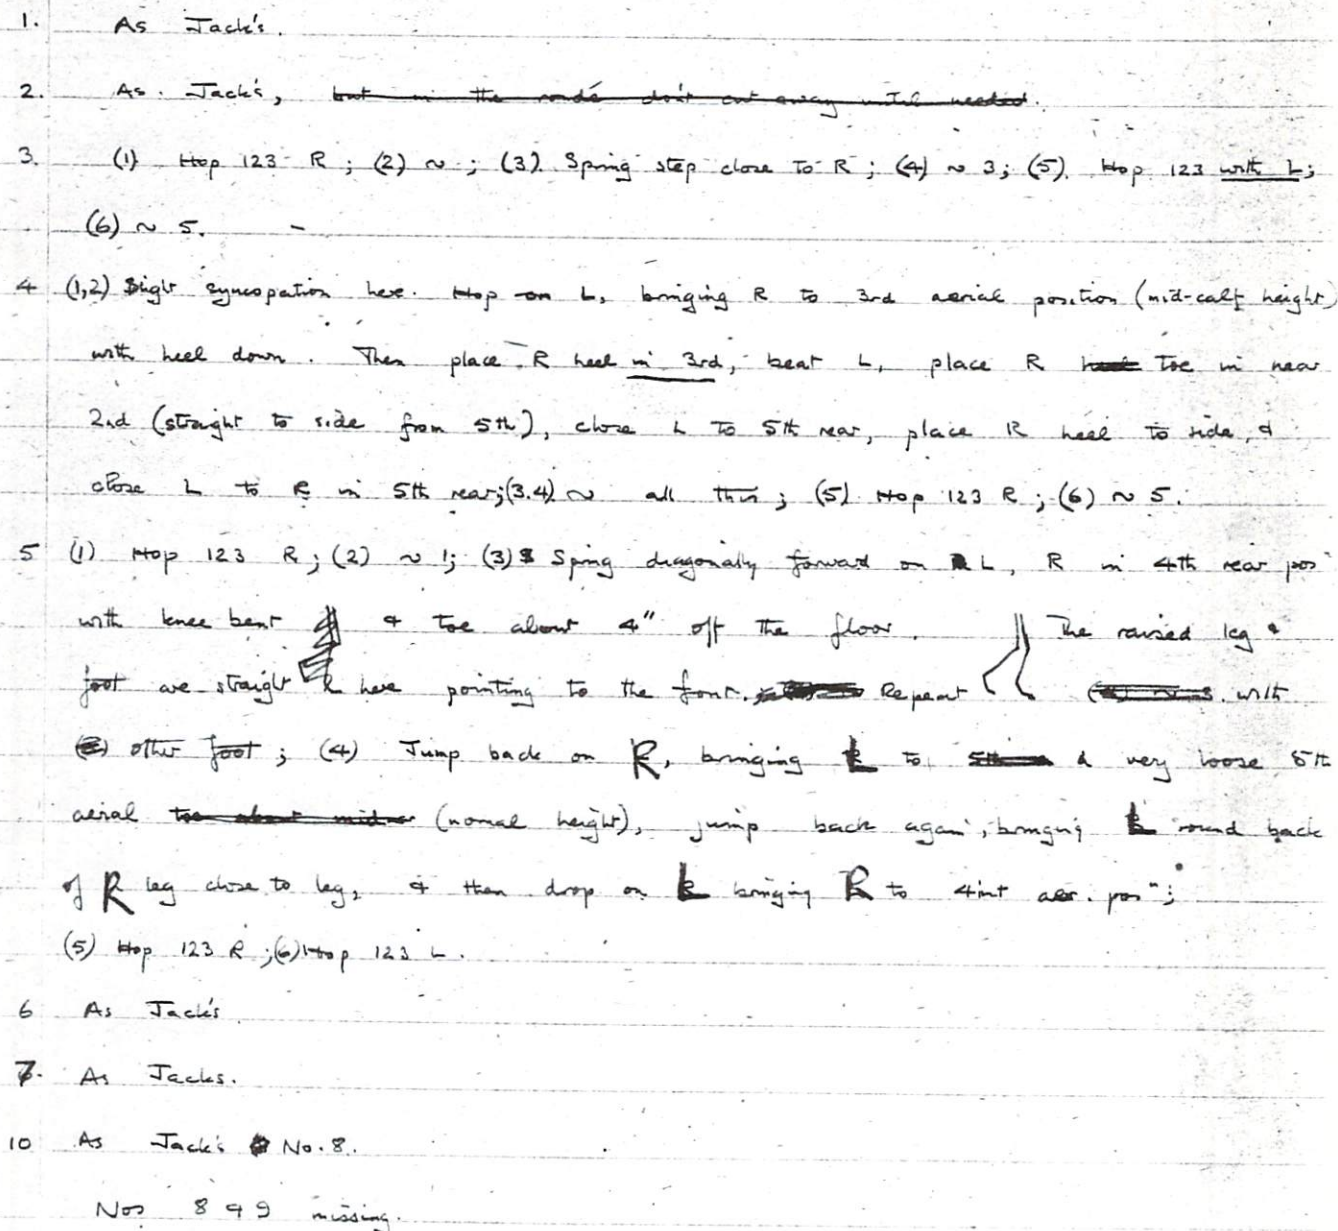 1. As Jack's.
2. As Jack's, but in the rondé don't cut away until needed.
3. (1) Hop 123 R; (2) ~; (3) Spring step close to R; (4) ~ 3; (5) Hop 123 with L;
(6) ~ 5. –
4 (1,2) Slight syncopation here. Hop on L, bringing R to 3rd aerial position (mid-calf height)
with heel down. Then place R heel in 3rd, beat L, place R heel toe in near
2nd (straight to side from 5th), close L to 5th rear, place R heel to side, &
close L to R in 5th rear; (3.4) ~ all this; (5) Hop 123 R; (6) ~ 5.
5 (1) Hop 123 R; (2) ~ 1; (3) Sping diagonally forward on L, R in 4th rear pos
with knee bent & toe about 4" off the floor. The raised leg &
foot are straight here pointing to the font. Repeat with
other foot; (4) Jump back on R, bringing L to 5th a very loose 5th
aerial toe about mid (nomal height), jump back again, bringing L round back
of R leg close to leg, & then drop on L bringing R to 4 int aer. posn;
(5) Hop 123 R; (6) Hop 123 L.
6 As Jack's
7. As Jacks.
10 As Jack's No. 8.
Nos 8 & 9 missing.